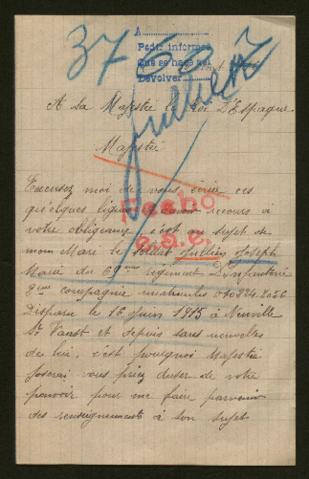 37
A
Pedir informes
Que se haga así
Devolver
A Sa Majesté le Roi D'Espagne
Majesté
Excusez moi de vous écrire ces
quelques lignes avoir recours à
Fecho
votre obligeance, c'est au sujet de
s.s.e.
mon Mari le soldat Jullien Joseph
Marié du 69ème Régiment D'infanterie
compagnie matricules
Disparu le 16 juin 1915 à Neuville
St Vaast et depuis sans nouvelles
de lui, c'est pourquoi Majesté
J'oserai vous priez d'user de votre
pouvoir pour me faire parvenir
des renseignements à son sujet